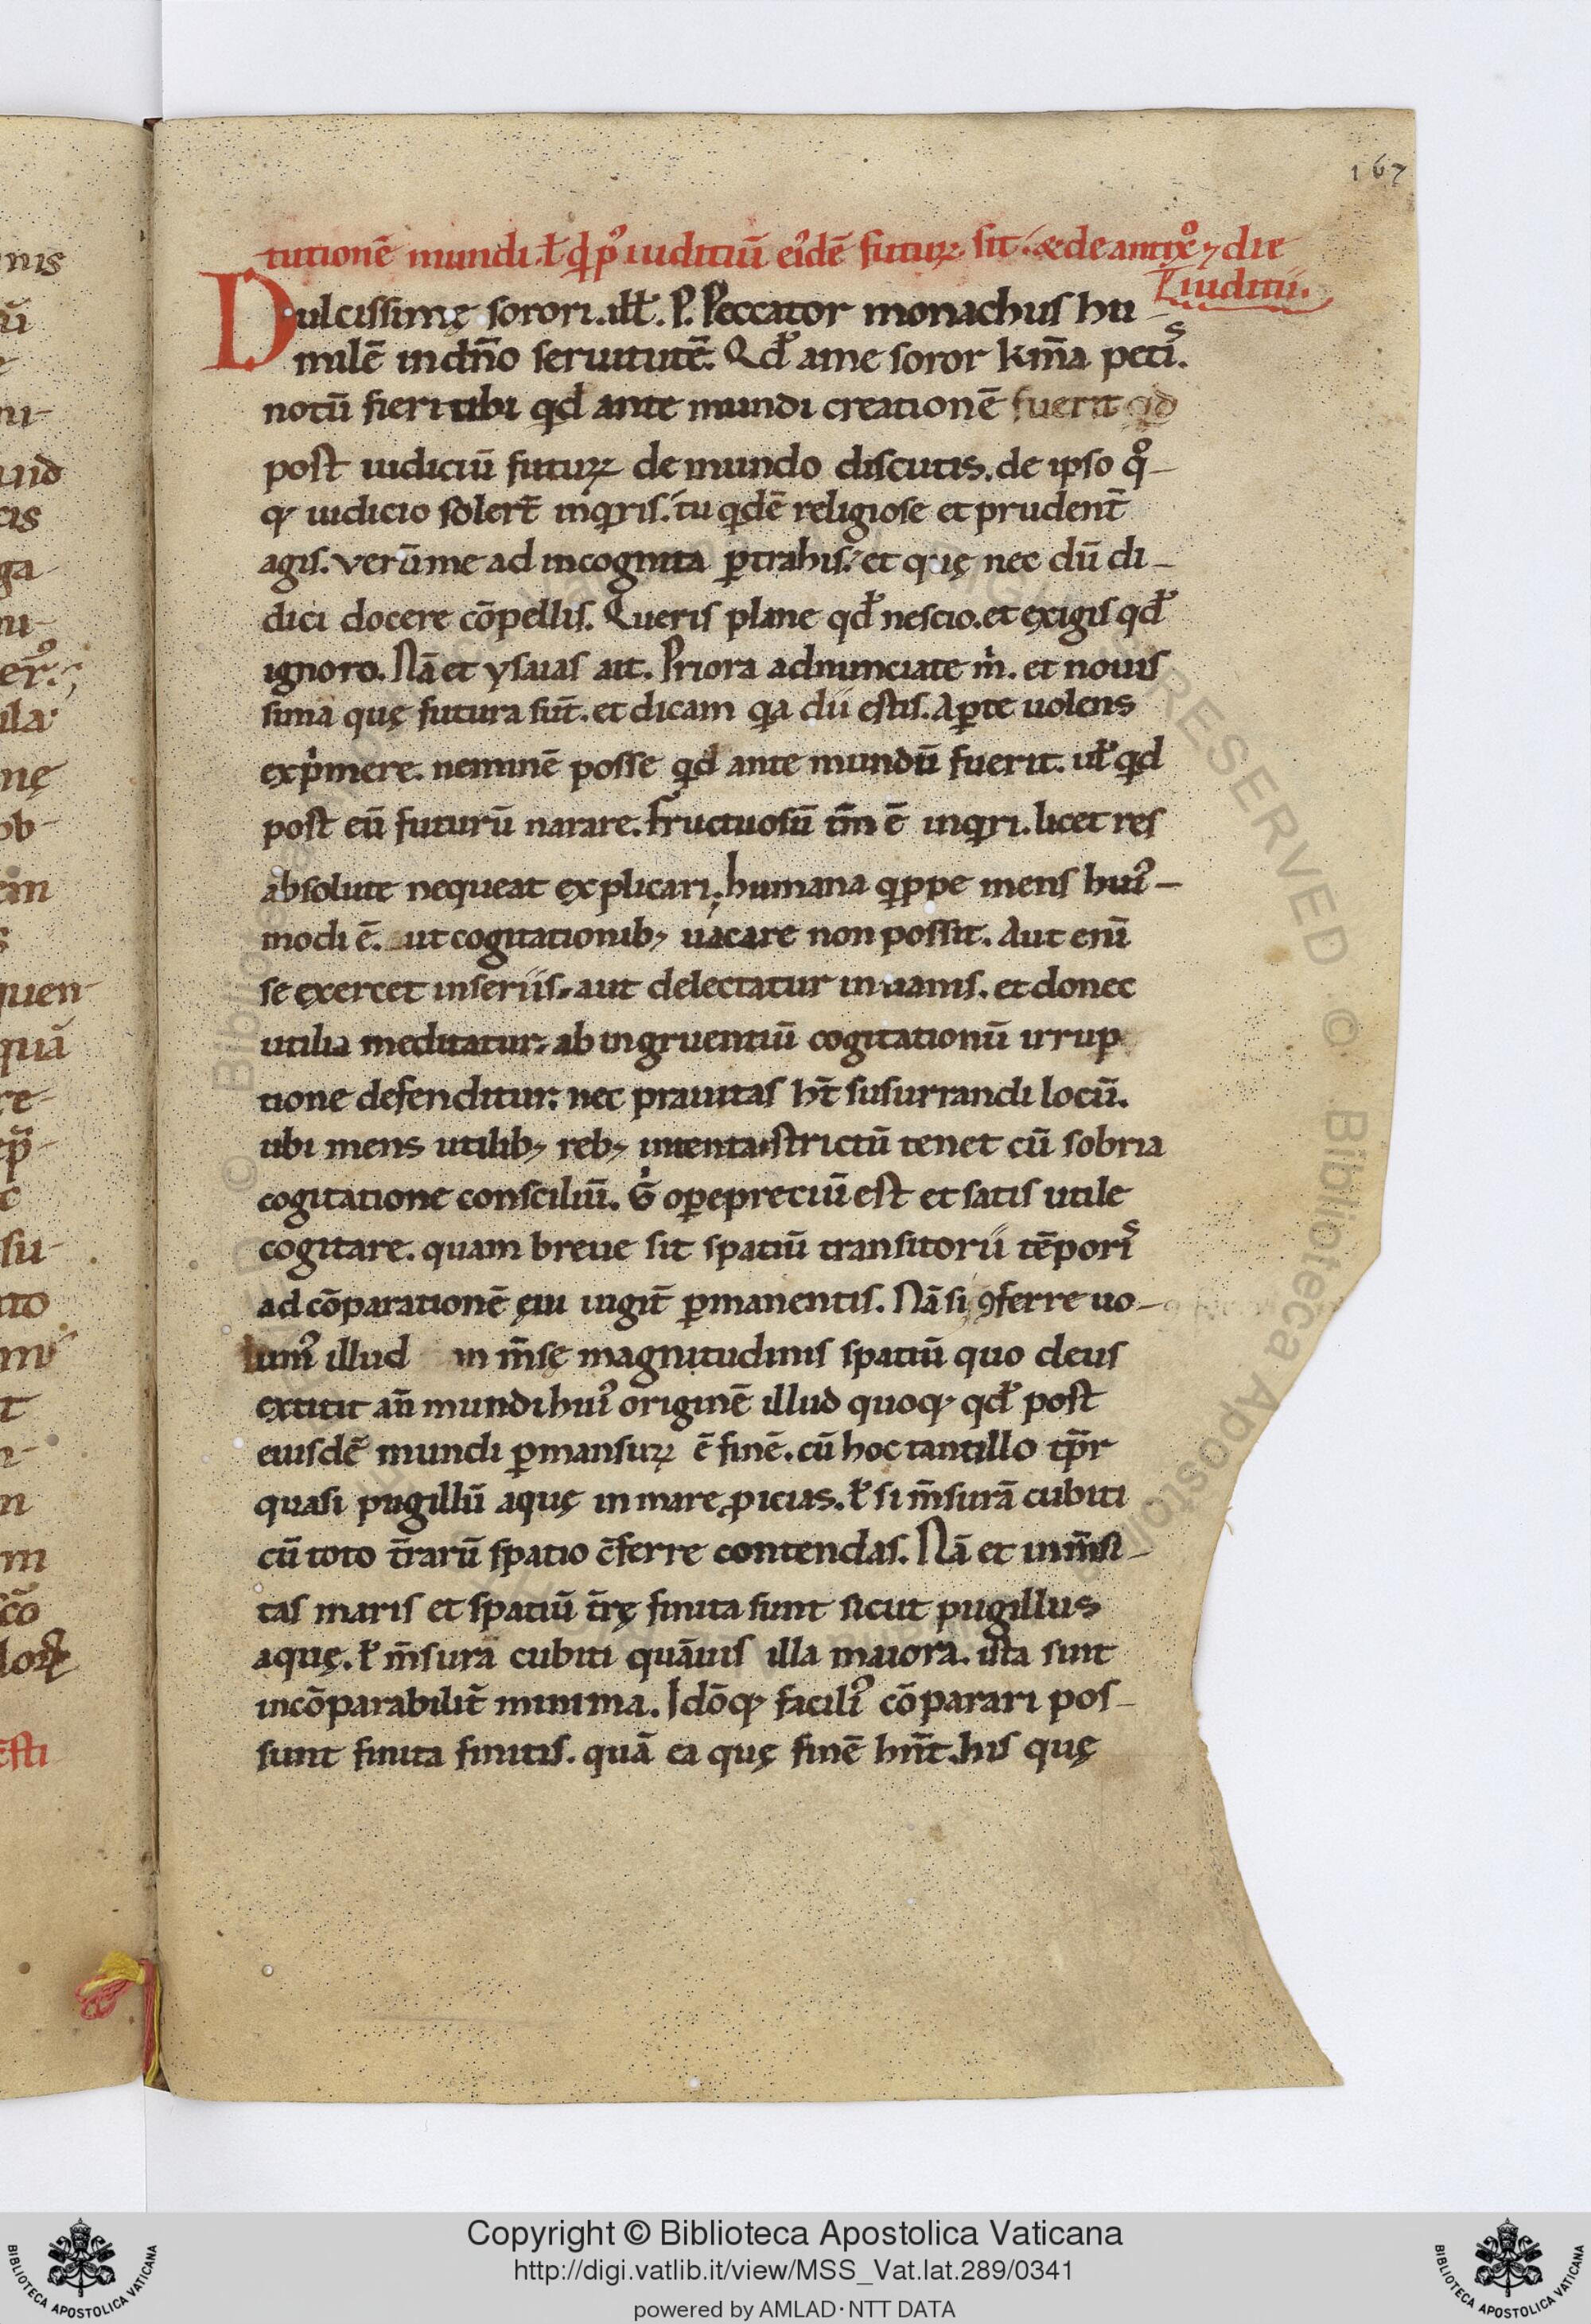 167
tutionē mundi. ł qͥ p᷒ iuditiū eiꝰdē futuꝝ sit. & de antixp̄o ⁊ die
iuditii.
Dulcissimę sorori. iƚƚ. P. Peccator monachus hu-
milē in dn̄o seruitutē. Qd̓ a me soror km̄a petis.
notū fieri tibi qid ante mundi creationē fuerit qid
post iudiciū futuꝝ de mundo discutis. de ipso qo-
qꝫ iudicio solert̄ inqiris. tu qidē religiose et prudent̄
agis. verū me ad incognita ꝑtrahis. et quę nec dū di-
dici docere cōpellis. Queris plane qd̓ nescio. et exigis qd̓
ignoro. Nā et ysaias ait. Priora adnunciate m̓. et nouis
sima quę futura sūt. et dicam qa dii estis. Aꝑte uolens
exp̓mere. neminē posse qid ante mundū fuerit. uƚ qid
post eū futurū narare. Fructuosū tm̄ ē inqiri. licet res
absolute nequeat explicari. humana qippe mens huiꝰ-
modi ē. ut cogitationibꝫ uacare non possit. Aut enī
se exercet in seriis. aut delectatur in uanis. et donec
utilia meditatur. ab ingruentiū cogitationū irrup
tione defenditur. nec prauitas ht̄ susurrandi locū.
ubi mens utilibꝫ rebꝫ intenta strictū tenet cū sobria
cogitatione consciliū. G̓ oꝑepreciū est et satis utile
cogitare. quam breue sit spatiū transitorii tēporis
ad cōparationē ęui iugit̄ ꝑmanentis. Nā si ꝯferre uo-
lumꝰ illud in m̄sę magnitudinis spatiū quo deus
extitit an̄ mundi huiꝰ originē illud quoqꝫ qd̓ post
eiusdē mundi ꝑmansuꝝ ē finē. cū hoc tantillo tp̄r
quasi pugillū aquę in mare ꝓicias. ƚ si m̄surā cubiti
cū toto t̄rarū spatio c̄ferre contendas. Nā et inm̄si-
tas maris et spatiū t̄rę finita sunt sicut pugillus
aquę. ƚ m̄sura cubiti quāuis illa maiora. ista sint
incōparabilit̄ minima. Idōqꝫ faciliꝰ cōparari pos-
sunt finita finitis. quā ea quę finē hn̄t. his quę
Copyright © Biblioteca Apostolica Vaticana
http://digi.vatlib.it/view/MSS_Vat.lat.289/0341
powered by AMLAD·NTT DATA